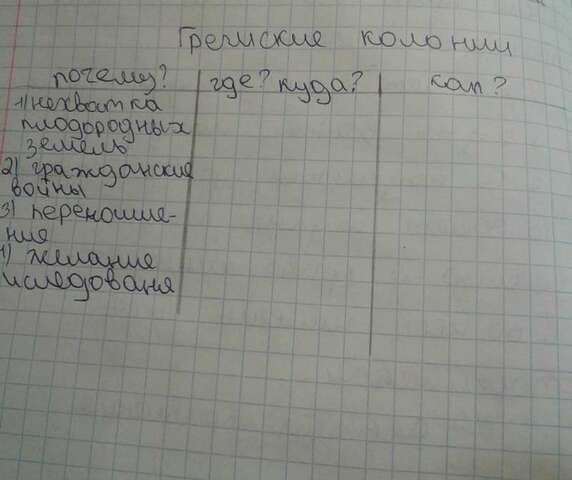 Греческие колонии
почему? где? куда? как?
1) нехватка
плодородных
земель
2) гражданские
войны
3) перенаселе-
ние
4) желание
иследования